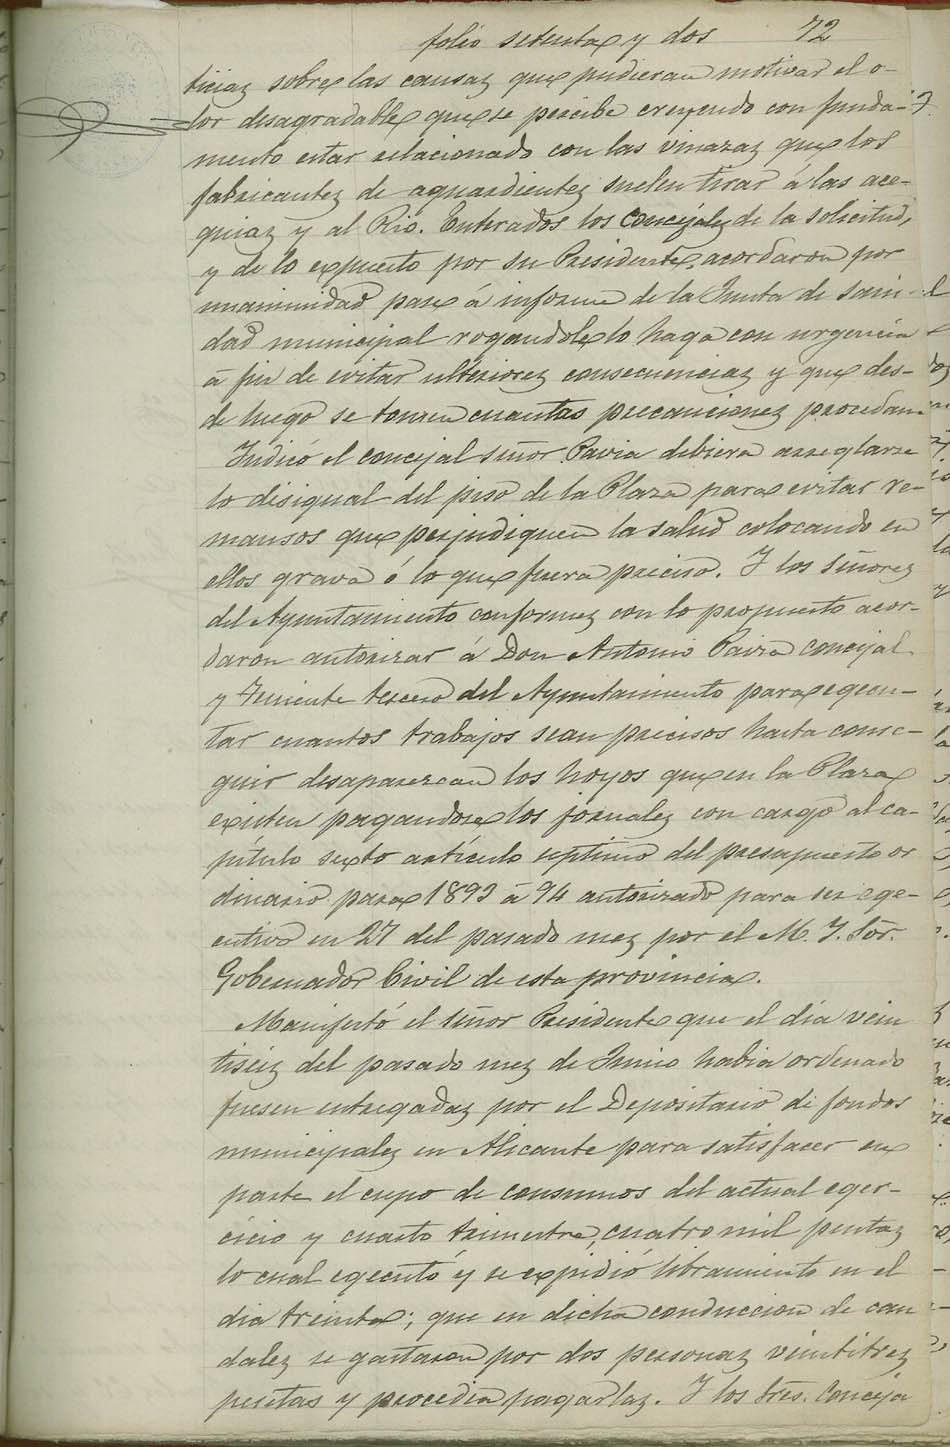 folio setenta y dos 72
ticias sobre las causas que pudieran motivar el o-
lor desagradable que se percibe creyendo con funda-
mento estar relacionado con las vinazas que los
fabricantes de aguardientes suelen tirar á las ace-
quias y al Rio. Enterados los concejales de la solicitud,
y de lo expuesto por su Presidente, acordaron por
unanimidad pase á informe de la Junta de Sani-
dad municipal rogandole lo haga con urgencia
á fin de evitar ulteriores consecuencias y que des-
de luego se tomen cuantas precauciones procedan.
Indicó el concejal señor Pavia debiera arreglarse
lo disigual del piso de la Plaza para evitar re-
mansos que perjudiquen la salud colocando en
ellos grava ó lo que fuera preciso. Y los Señores
del Ayuntamiento conformes con lo propuesto acor-
daron autorizar á Don Antonio Pavia concejal
y Teniente tercero del Ayuntamiento para egecu-
tar cuantos trabajos sean precisos hasta conse-
guir desaparezcan los hoyos que en la Plaza
existen pagandose los jornales con cargo al ca-
pítulo sexto artículo septimo del presupuesto or
dinario para 1893 á 94 autorizado para ser ege-
cutivo en 27 del pasado mes por el M. Y. Sor.
Gobernador Civil de esta provincia.
Manifestó el señor Presidente que el día vein
tiseis del pasado mes de Junio habia ordenado
fuesen entregadas por el Depositario de fondos
municipales en Alicante para satisfacer en
parte el cupo de consumos del actual eger-
cicio y cuarto trimestre, cuatro mil pesetas
lo cual egecutó y se expidió libramiento en el
dia treinta; que en dicha conduccion de cau
dales se gastaron por dos personas veintitres
pesetas y procedia pagarlas. Y los Sres. Conceja